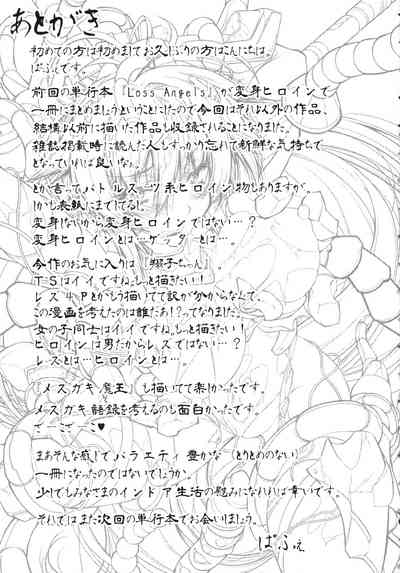 あとがき
初めての方は初めましてお久しぶりの方はこんにちは。
ぱふぇです。
前回の単行本『Loss Angels』が変身ヒロインで
一冊にまとめましょうということにしたので今回はそれ以外の作品、
結構以前に描いた作品も収録されることになりました。
雑誌掲載時に読んだ人もすっかり忘れて新鮮な気持ちで
となっていれば良いな。
とか言ってバトルスーツ系ヒロイン物もありますが。
しかも表紙にまでしてるし。
変身しないから変身ヒロインではない…?
変身ヒロインとは…ゲッターとは…。
今作のお気に入りは『翔子ちゃん』。
TSはイイですねもっと描きたい!
レズ4Pとかもう描いてて訳が分からなんで、
この漫画を考えたのは誰だあ!?ってなりました。
女の子同士はイイですねもっと描きたい!
ヒロインは男だからレズではない…?
レズとは…ヒロインとは…。
『メスガキ魔王』も描いてて楽しかったです。
メスガキ語録を考えるのも面白かったです。
ざーこざーこ♥
まあそんな感じでバラエティ豊かな(とりとめのない)
一冊になったのではないでしょうか。
少しでもみなさまのインドア生活の慰みになれれば幸いです。
それではまた次回の単行本でお会いしましょう。
ぱふぇ